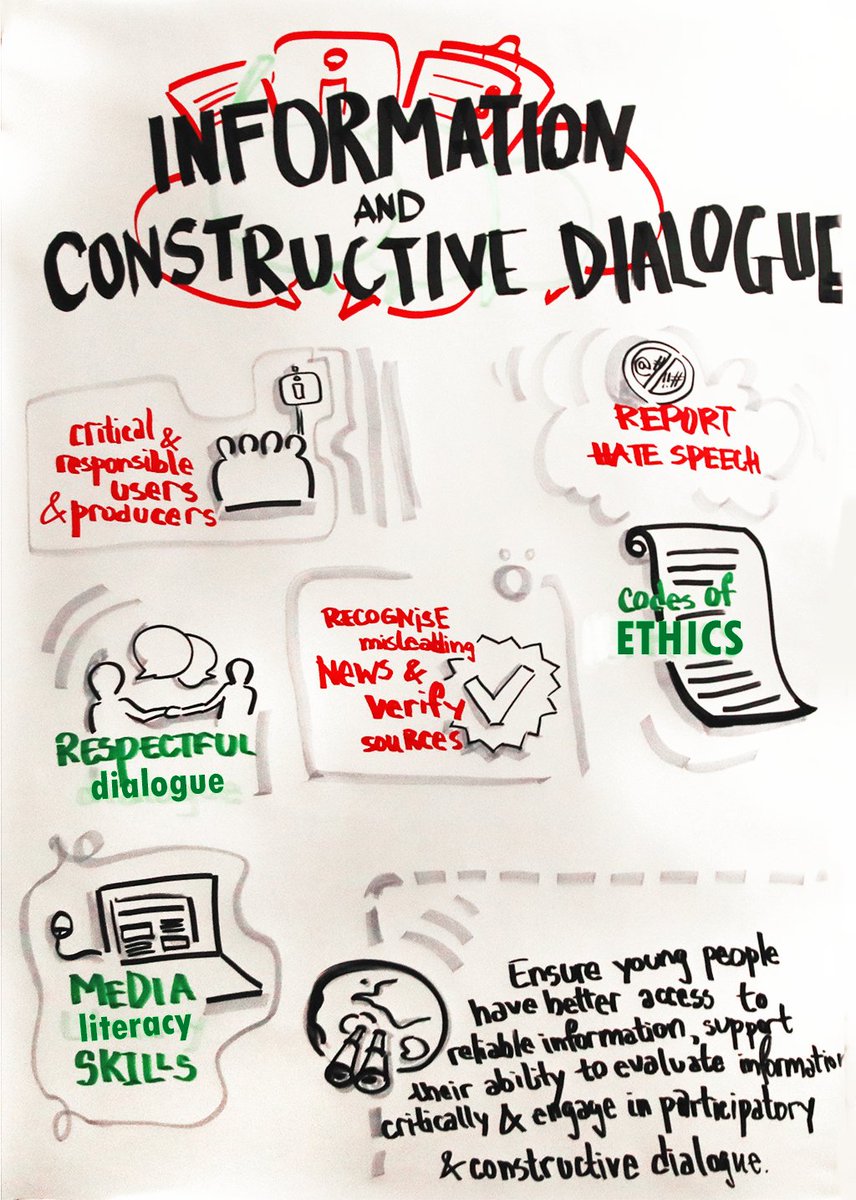 INFORMATION
AND
CONSTRUCTIVE DIALOGUE
critical &
responsible
users
& producers
i
@# !!#
REPORT
HATE SPEECH
RECOGNISE
misleading
NEWS &
verify
sources
codes of
ETHICS
RESPECTFUL
dialogue
MEDIA
literacy
SKILLS
Ensure young people
have better access to
reliable information, support
their ability to evaluate information
critically & engage in participatory
& constructive dialogue.